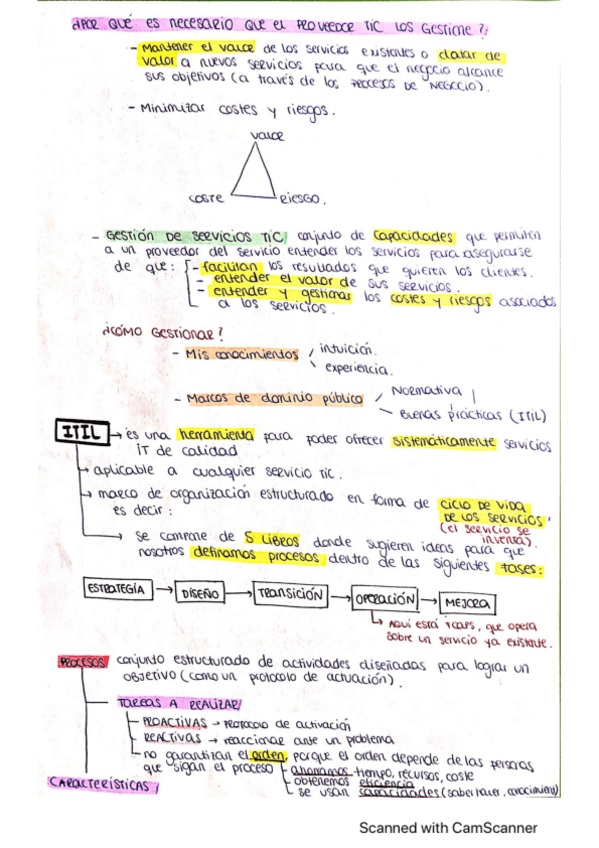 ¿POR QUÉ ES NECESARIO QUE EL PROVEEDOR TIC LOS GESTIONE?
- Mantener el valor de los servicios existentes o dotar de
valor a nuevos servicios para que el negocio alcance
sus objetivos (a través de los PROCESOS DE NEGOCIO).
- Minimizar costes y riesgos.
valor
COSTE
RIESGO.
- GESTIÓN DE SERVICIOS TIC/ conjunto de capacidades que permiten
a un proveedor del servicio entender los servicios para asegurarse
de que: - facilitan los resultados que quieren los clientes.
- entender el valor de sus servicios.
- entender y gestionar los costes y riesgos asociados
a los servicios.
¿CÓMO GESTIONAR?
- Mis conocimientos
intuición.
experiencia.
- Marcos de dominio público
Normativa
Buenas prácticas (ITIL)
ITIL → es una herramienta para poder ofrecer sistemáticamente servicios
IT de calidad
→ aplicable a cualquier servicio TIC.
→ marco de organización estructurado en forma de CICLO DE VIDA
DE LOS SERVICIOS,
es decir:
(el servicio se
inventa).
→ se compone de 5 LIBROS donde sugieren ideas para que
nosotros definamos procesos dentro de las siguientes fases:
ESTRATEGIA → DISEÑO → TRANSICIÓN → OPERACIÓN → MEJORA
→ Aquí está, que opera
sobre un servicio ya existente.
PROCESOS conjunto estructurado de actividades diseñadas para lograr un
objetivo (como un protocolo de actuación).
TAREAS A REALIZAR/
PROACTIVAS → PROTOCOLO de activación
REACTIVAS → reaccionar ante un problema
no garantizan el orden, porque el orden depende de las personas
que sigan el proceso
ahorramos tiempo, recursos, coste
obtenemos eficiencia
se usan capacidades (saber hacer, conocimiento)
CARACTERÍSTICAS/
Scanned with CamScanner